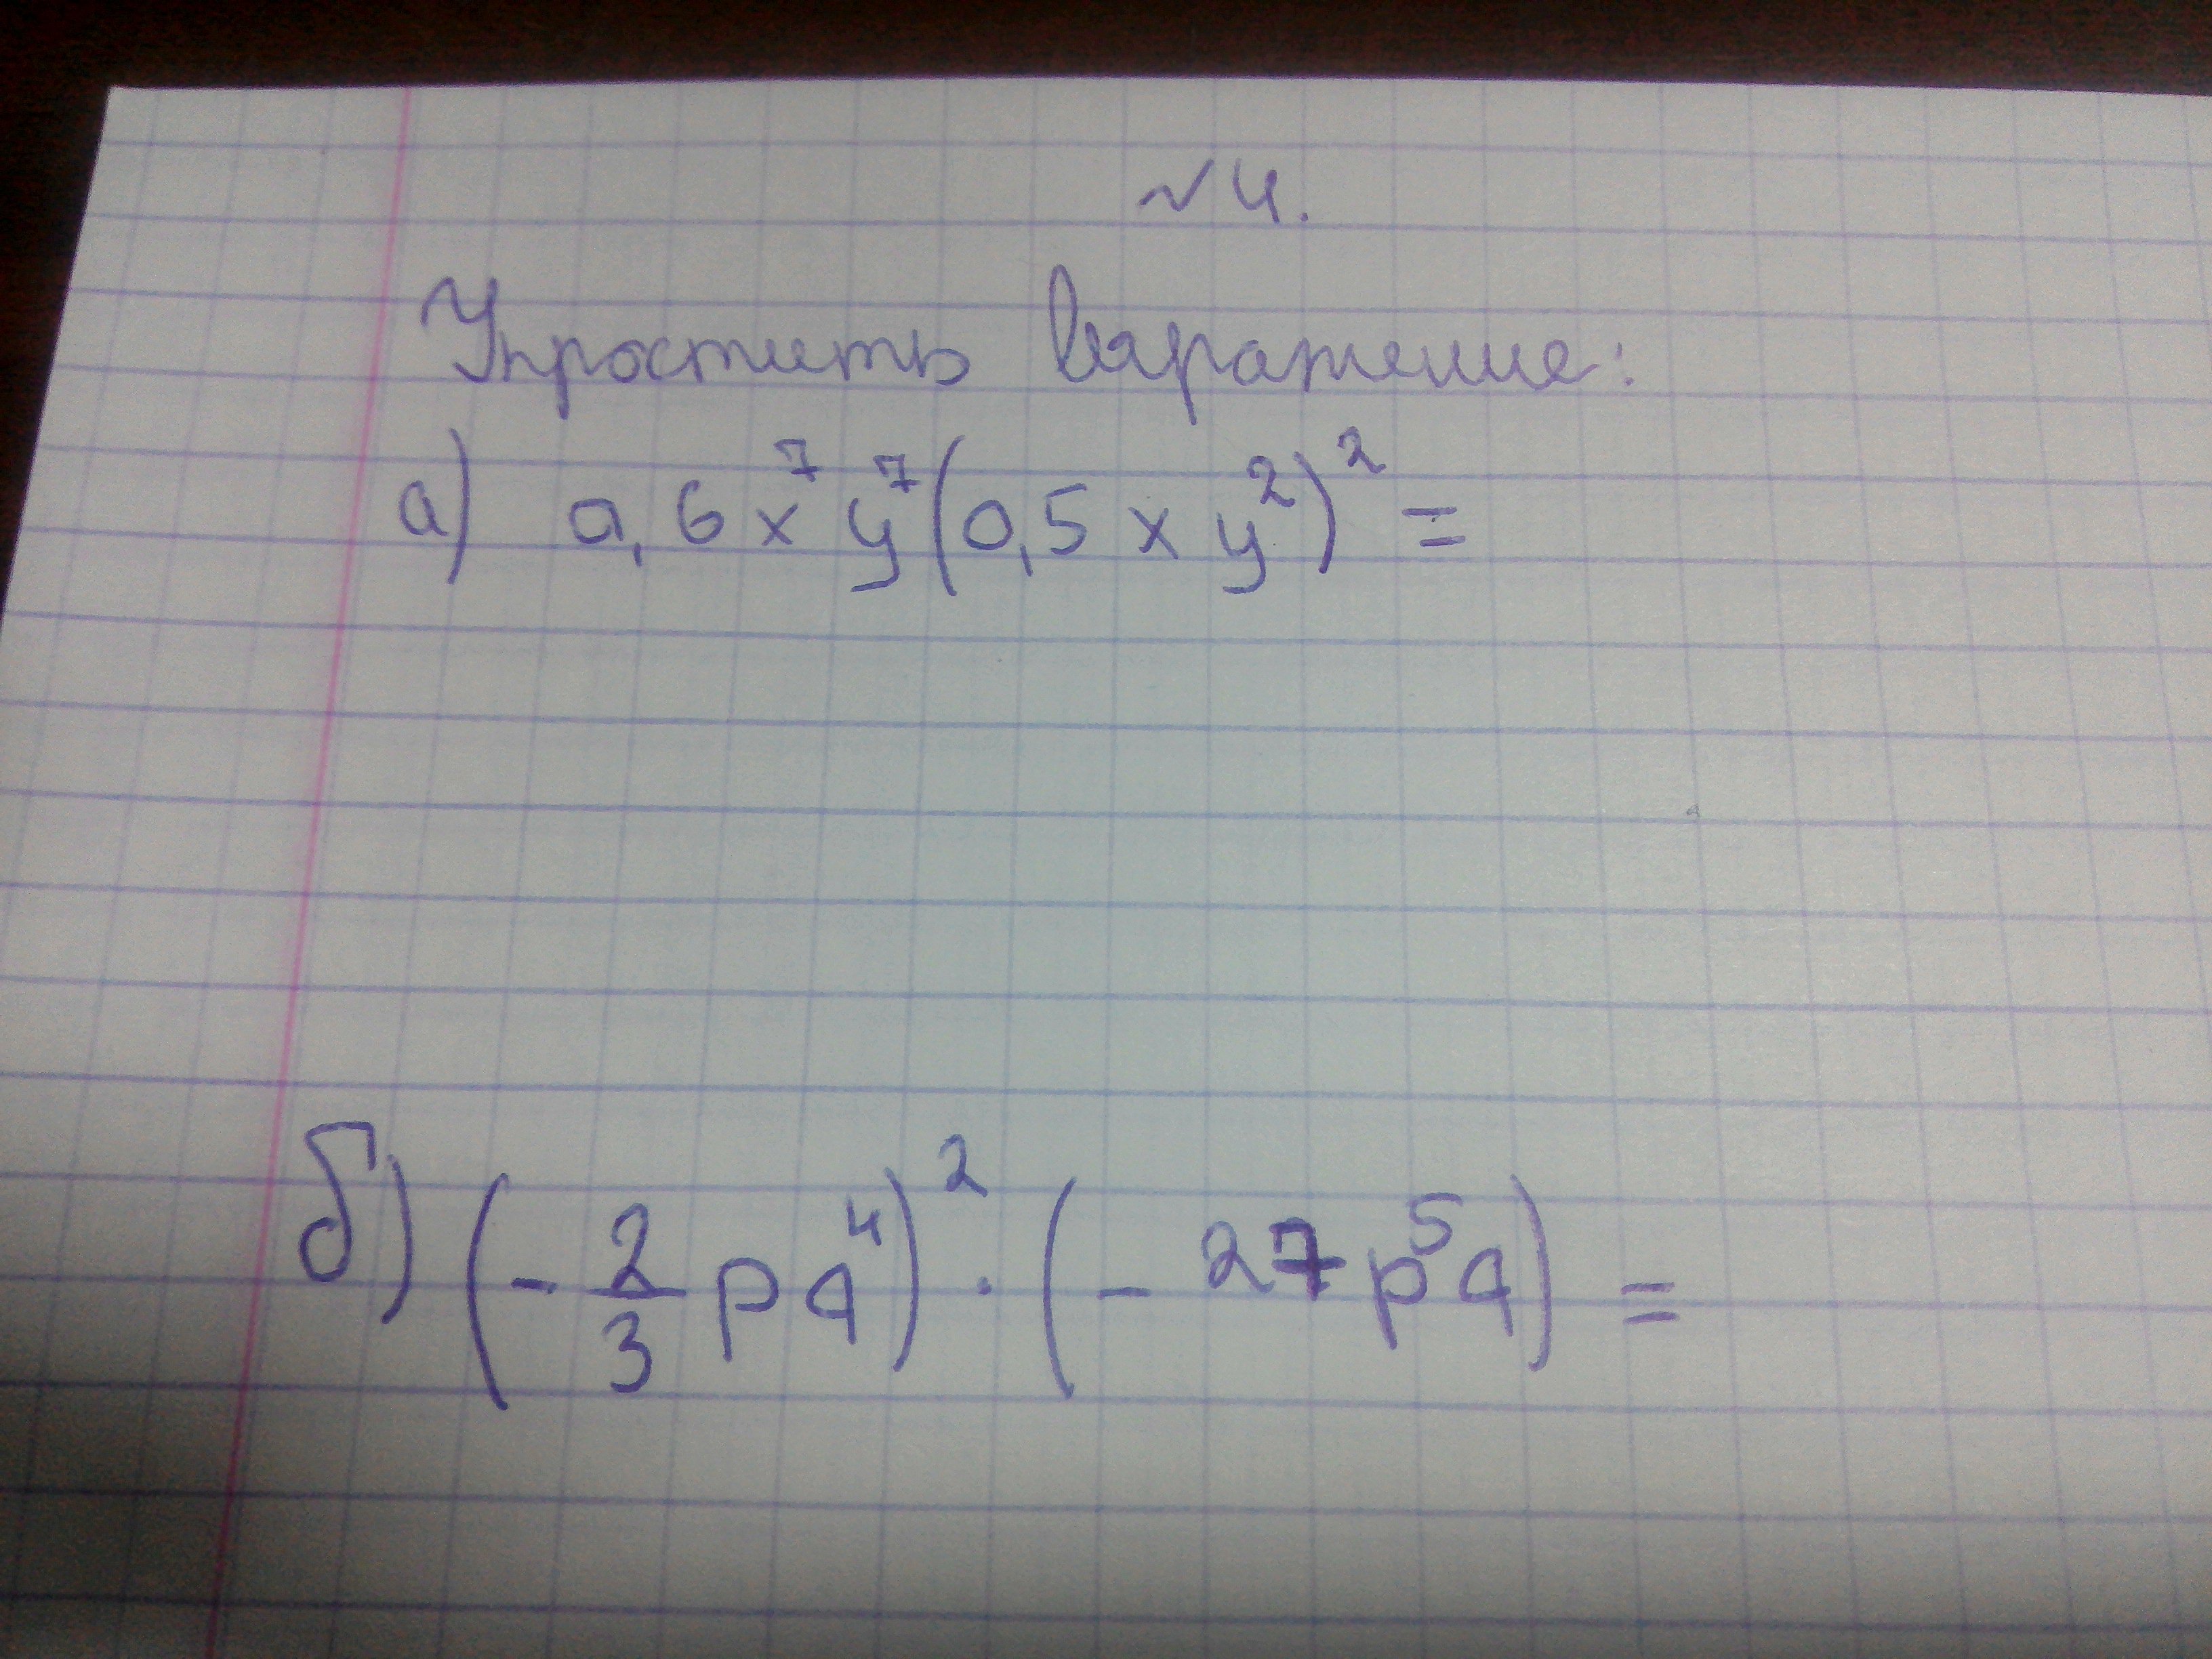 № 4.
Упростить выражение:
а) 0,6x⁷y⁷(0,5xy²)² =
б) (-2/3pq⁴)² · (-27p⁵q) =